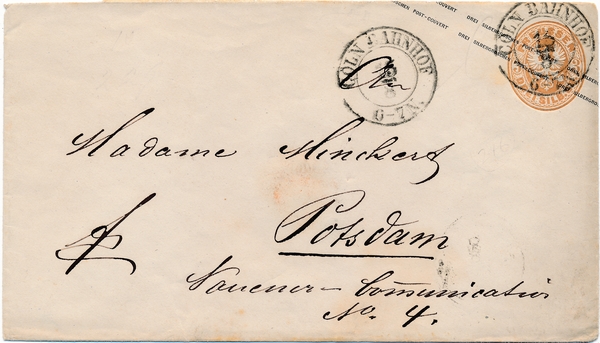 POST-COUVERT DREI SILBERGROSCHEN POST-COUVERT DREI SILBERGROSCHEN
KÖLN BAHNHOF
6-7N.
KÖLN BAHNHOF
6-7N.
DREI SILB
An
Madame Minckert
Potsdam
fr
Nauener-Com̅unication
No. 4.